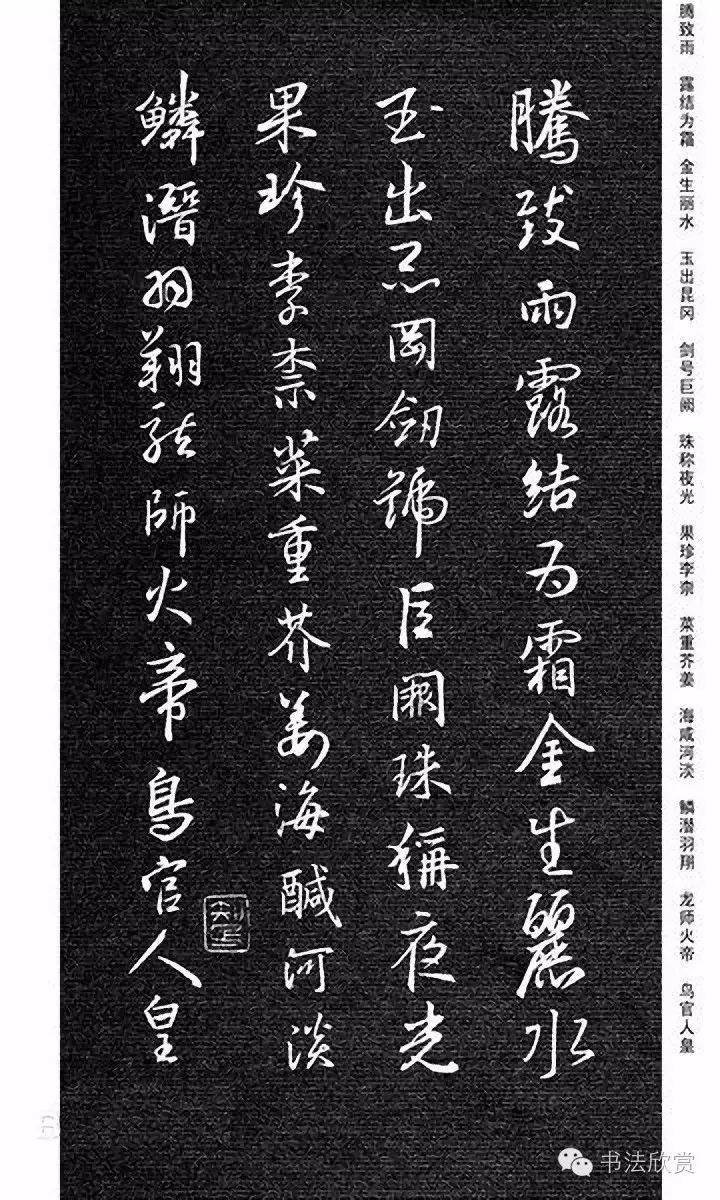 腾致雨 露结为霜 金生丽水 玉出昆冈 剑号巨阙 珠称夜光 果珍李柰 菜重芥姜 海咸河淡 鳞潜羽翔 龙师火帝 鸟官人皇
騰致雨露結为霜金生麗水
玉出昆岡劒號巨闕珠稱夜光
果珍李柰菜重芥姜海醎河淡
鱗潛羽翔龍師火帝鳥官人皇
书法欣赏